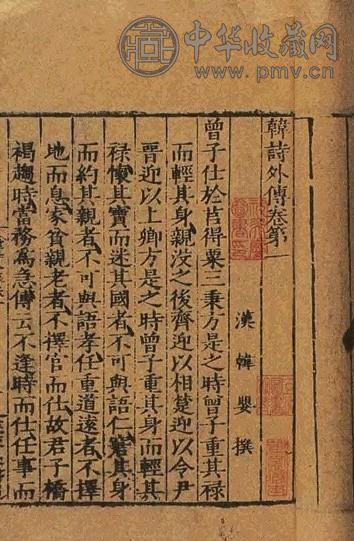 中华收藏网
www.pmv.cn
韓詩外傳卷第一
漢 韓 嬰 撰
曾子仕於莒得粟三秉方是之時曾子重其祿
而輕其身親沒之後齊迎以相楚迎以令尹
晉迎以上卿方是之時曾子重其身而輕其
祿懷其寶而迷其國者不可與語仁窘其身
而約其親者不可與語孝任重道遠者不擇
地而息家貧親老者不擇官而仕故君子橋
褐趨時當務為急傳云不逢時而仕任事而